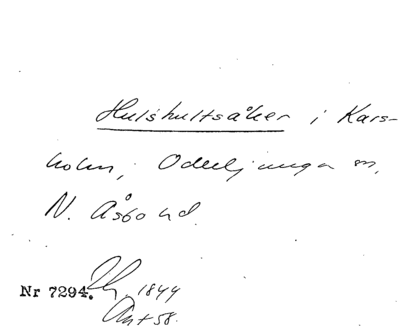 Hulshultsåker i Kars-
holm, Oderljunga sn,
N. Åsbo hd.
1844
Nr 7294.
Ant 58.